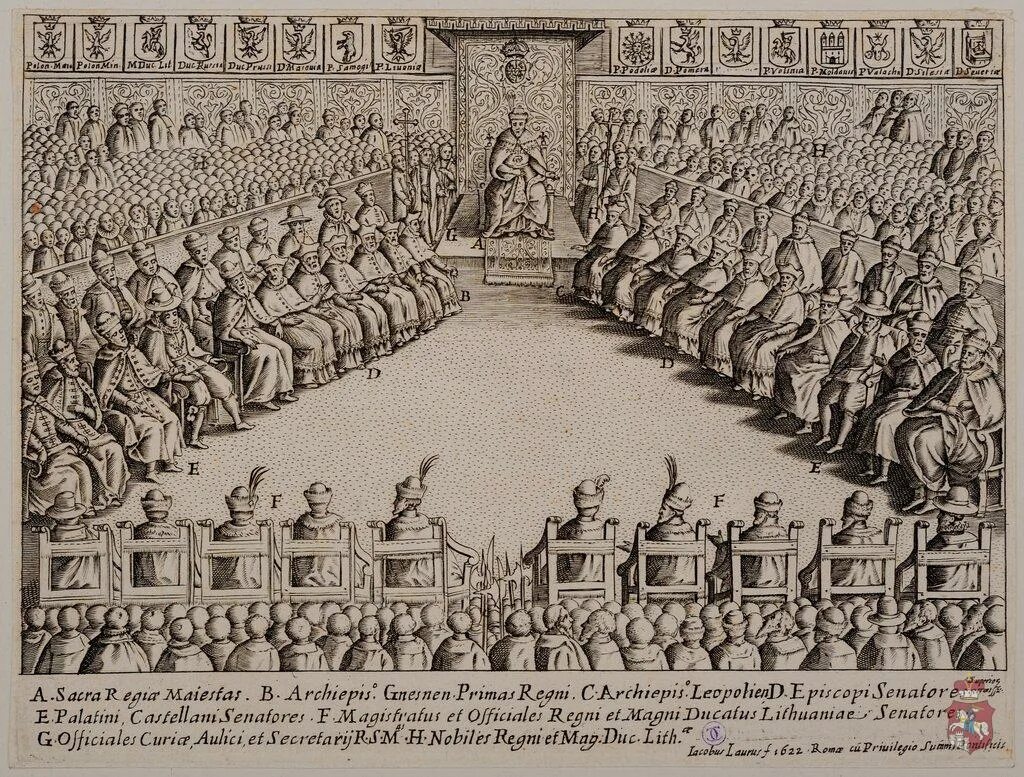 Polon. Maio
Polon Min.
M Duc Lit
Duc Russiæ
Duc Prussi
D Masouiæ
P. Samogi
P. Liuoniæ
P. Podoliæ
D. Pomera
P Volinia
P. Moldauia
P Valachæ
D. Silesiæ
D. Seueriæ
H
H
H
G
A
B
C
D
D
E
E
F
F
A. Sacra Regiæ Maiestas. B. Archiepis.º Gnesnen. Primas Regni. C. Archiepis.º Leopolien D. Episcopi Senatore
E. Palatini, Castellani Senatores. F. Magistratus et Officiales Regni et Magni Ducatus Lithuaniæ Senatore
G. Officiales Curiæ, Aulici, et Secretarij R.S.M.ˢ H. Nobiles Regni et Mag. Duc. Lith.æ
Superior
Iacobus Laurus f 1622. Romæ cū Priuilegio Summi Pontificis